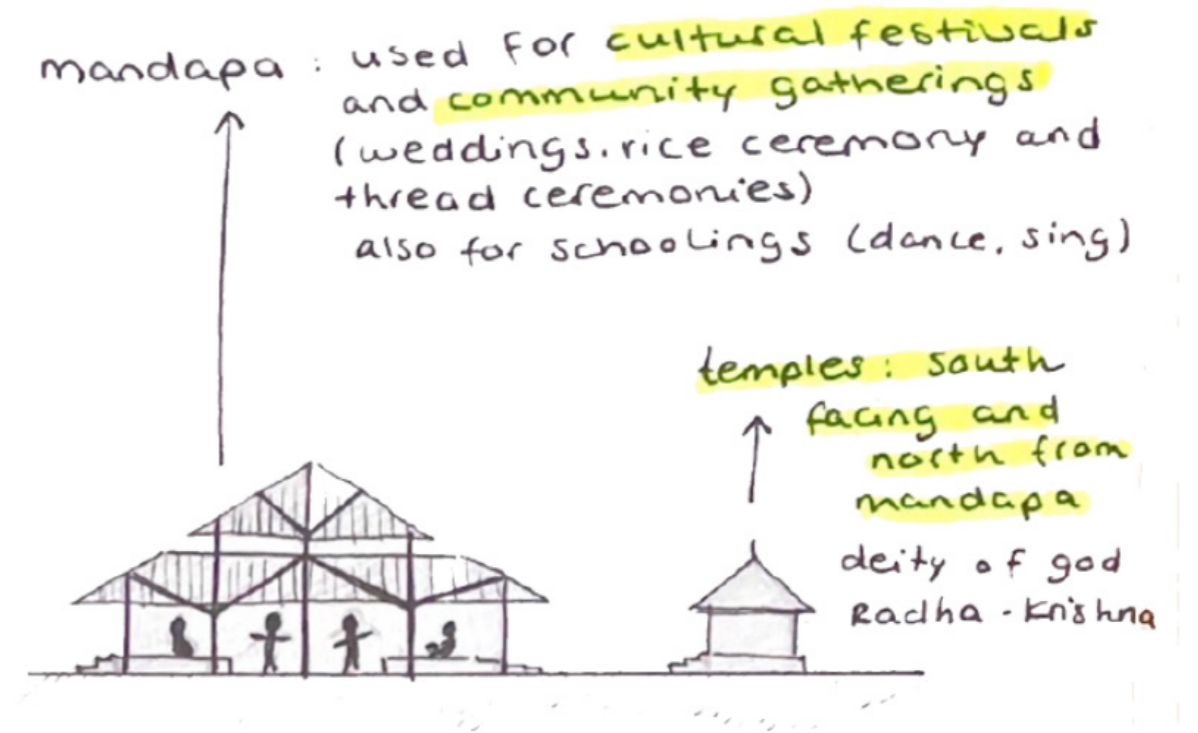 mandapa : used for cultural festivals
and community gatherings
(weddings, rice ceremony and
thread ceremonies)
also for schoolings (dance, sing)
temples : south
facing and
north from
mandapa
deity of god
Radha - Krishna